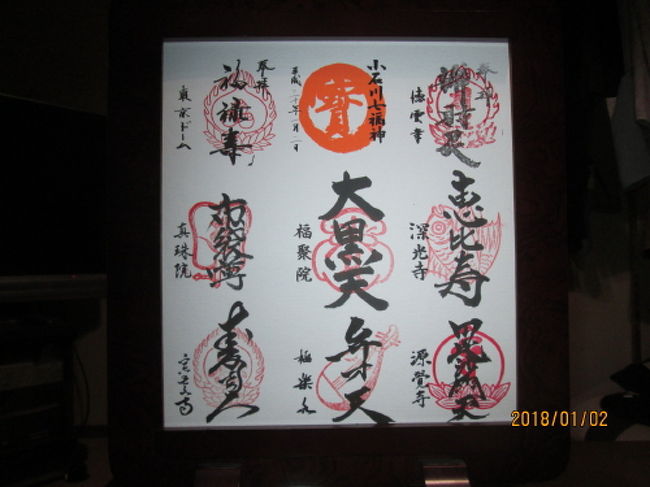 奉拝
辨財天
徳雲寺
小石川七福神
寶
奉拝
福禄寿
東京ドーム
恵比寿
深光寺
大黒天
福聚院
布袋尊
真珠院
毘沙門天
源覚寺
弁才天
極楽水
寿老人
宗慶寺
2018/01/02